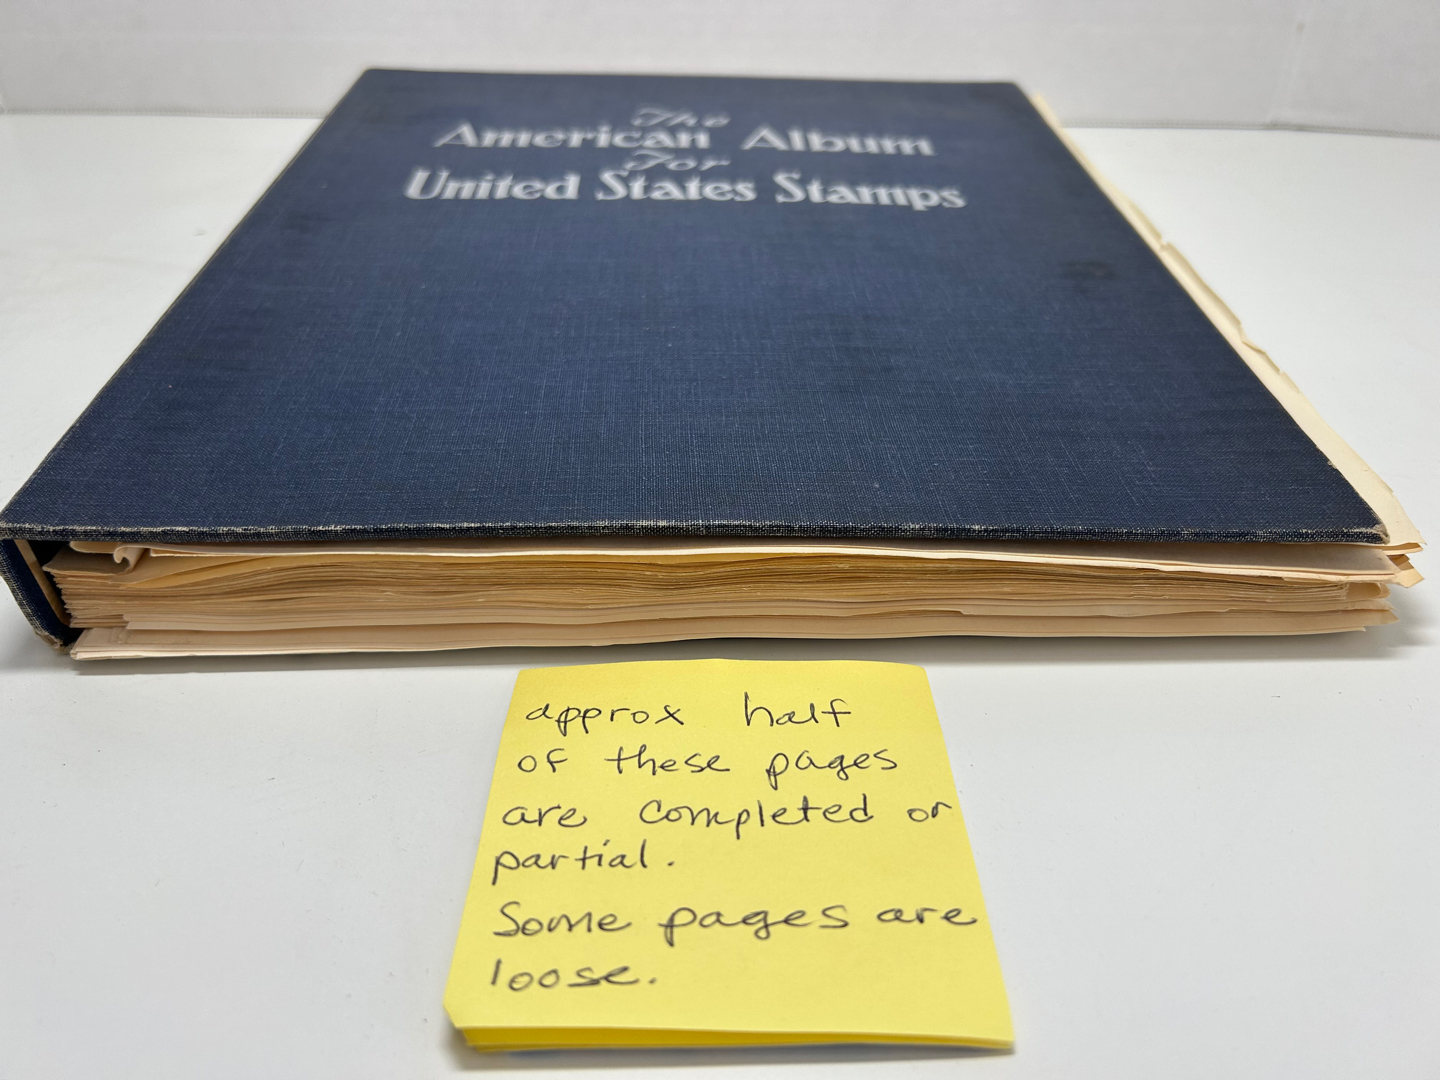 The
American Album
For
United States Stamps
approx half
of these pages
are completed or
partial.
Some pages are
loose.